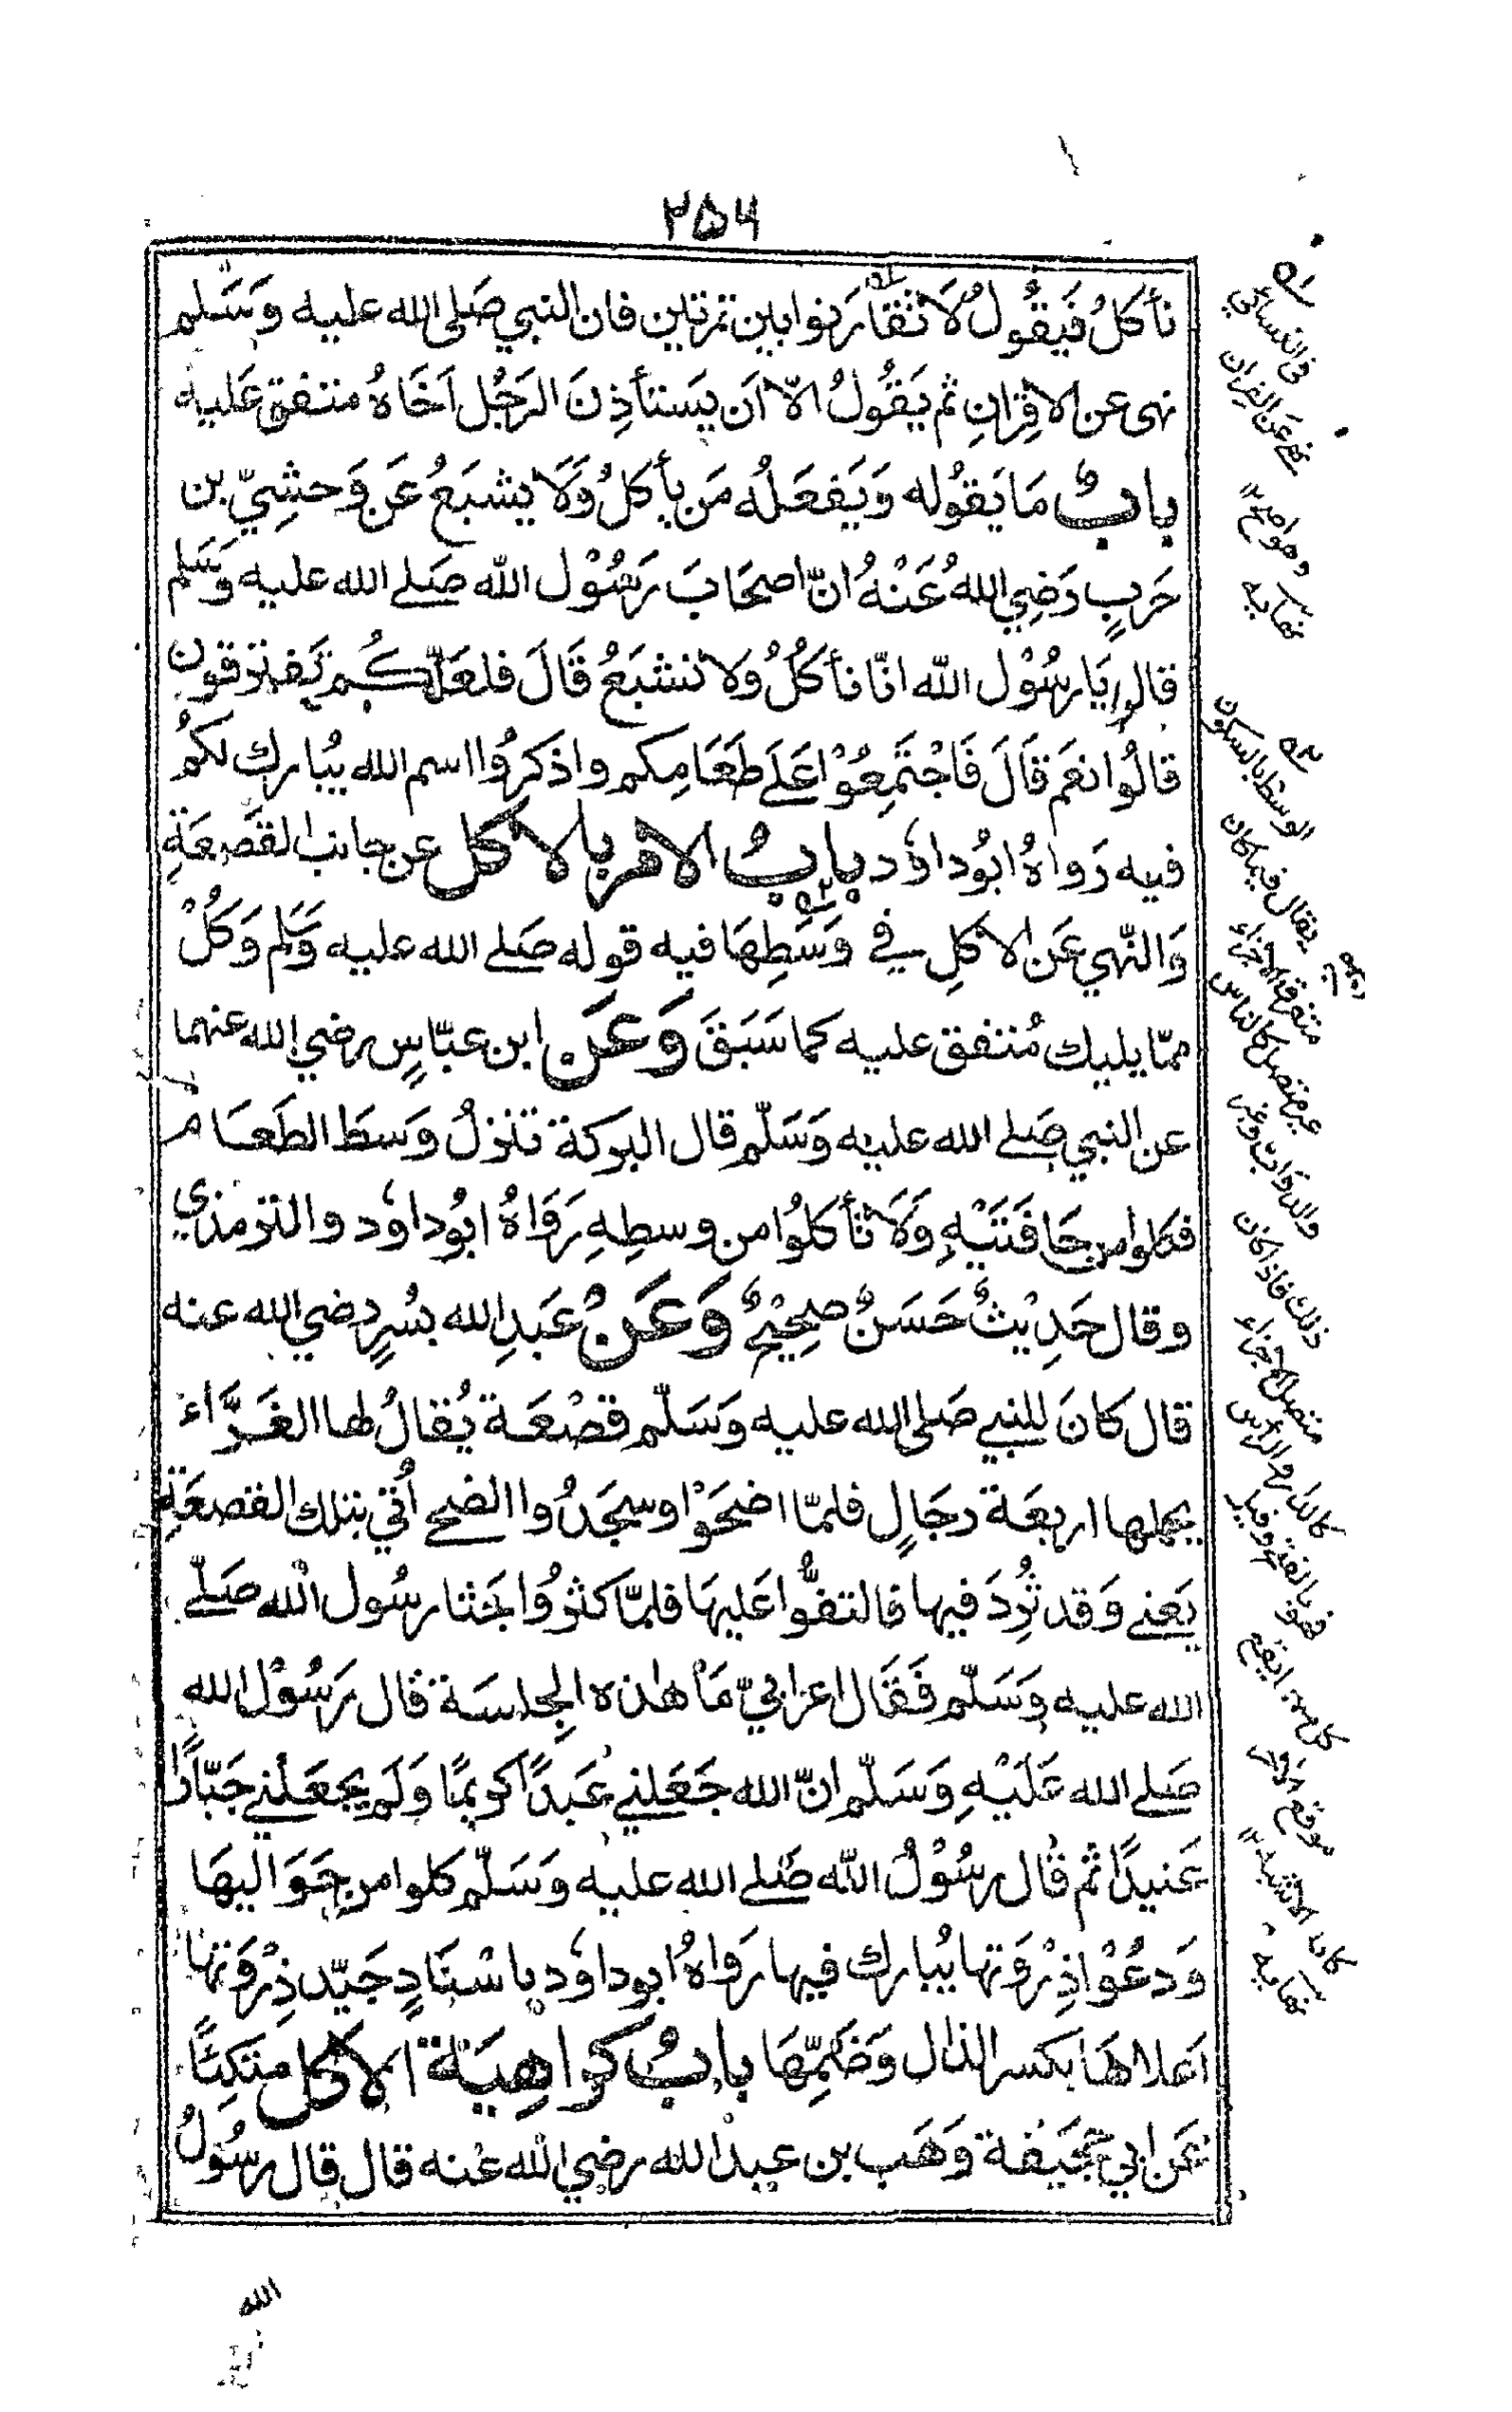 ٢٥٦
نأكلُ فَيقُولُ لَا تقَارَنوا بين تمرتين فان النبي صَلى الله عليه وَسَلم
نهى عن الاقِرَانِ ثم يَقُولُ الّا اَن يَستأذِنَ الرَجُل اَخَاهُ متفق عَليه
بابُ مَا يَقوُله وَيَفعَلُه مَن يأكلُ وَلَا يشبَعُ عَن وَحشِيّ بن
حَربٍ رَضِي اللهُ عَنْهُ انّ اصحَابَ رَسُوْل الله صَلے الله عليه وَسَلم
قالوا يَا رسُوْل الله انّا نأكلُ ولا نشبَعُ قَالَ فلعَلّكُم تَفترقون
قالُوا نعَم قَالَ فَاجْتَمِعُوْا عَلَے طَعَامِكم واذكرُوا اسم الله يُبارك لكمُ
فيه رَواهُ ابُو داوٗد بابُ الامر بالاكل عن جانب القَصعَةِ
وَالنّهي عَن الاكلِ في وَسَطِهَا فيه قوله صَلے الله عليه وَسَلم وَكُلْ
ممّا يليك مُتفق عليه كما سَبَقَ وَعَن ابن عبّاسٍ رضي الله عنهما
عن النبي صَلے الله عليه وَسَلّم قال البركة تنزلُ وَسطَ الطَعَام
فكلوا من حَافَتَيْهِ وَلَا تأكلُوا من وسطِهِ رَوَاهُ ابُو داوٗد والترمذي
وقال حَدِيْثٌ حَسَنٌ صحِيْحٌ وَعَنْ عَبدِ الله بسُرٍ رضي الله عنه
قال كانَ للنبے صَلى الله عليه وَسَلّم قصْعَة يُقالُ لها الغَرَّاء
يحملها اربعَة رجَالٍ فلمّا اضحَوْا وسجَدُوا الضحے اُتي بتلك القصعَةِ
يَعنے وَقد ثُرِدَ فيها فالتفُّوا عَليهَا فلمّا كثرُوا جَثا رسُول الله صَلّے
الله عليه وَسَلّم فَقَال اعرَابيّ مَا هٰذه الجِلسَة قال رَسُوْل الله
صَلے الله عَلَيْهِ وَسَلّم انّ الله جَعَلنے عَبدًا كريمًا وَلَم يجعَلنے جَبّارًا
عَنيدًا ثم قال رسُوْلُ الله صَلے الله عليه وَسَلّم كلوا من حَوَاليهَا
وَدعُوْا ذِرْوَتها يُبارك فيها رَوَاهُ ابو داوٗد باسْنَادٍ جَيّد ذِرْوَتها
اَعلاهَا بكسر الذال وَضَمِّهَا بابُ كراهِيَة الاكل متكِئًا
عَن ابي جُحَيفة وَهَب بن عبد الله رضي الله عنه قال قال رسُولُ
الله
في النسائي
نهى عَن القران
نهايه
الوسط بالسكون
يقال فيما كان
متفرق الاجزاء
غير متصل كالناس
والدوابّ وغير
ذلك فاذا كان
متصل الاجزاء
كالدار والرأس
فهو بالفتح وقيل
كل منهما يقع
موقع الاخر
كانه الاشبه
نهايه